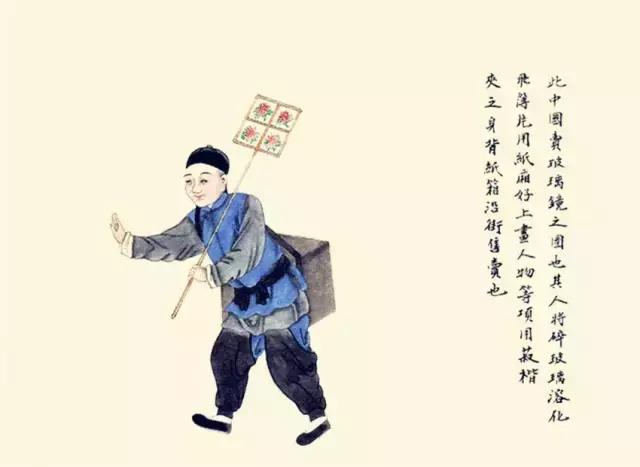 此中國賣玻璃鏡之圖也其人將碎玻璃溶化
飛薄片用紙廂好上畫人物等項用菽楷
夾之身背紙箱沿街售賣也